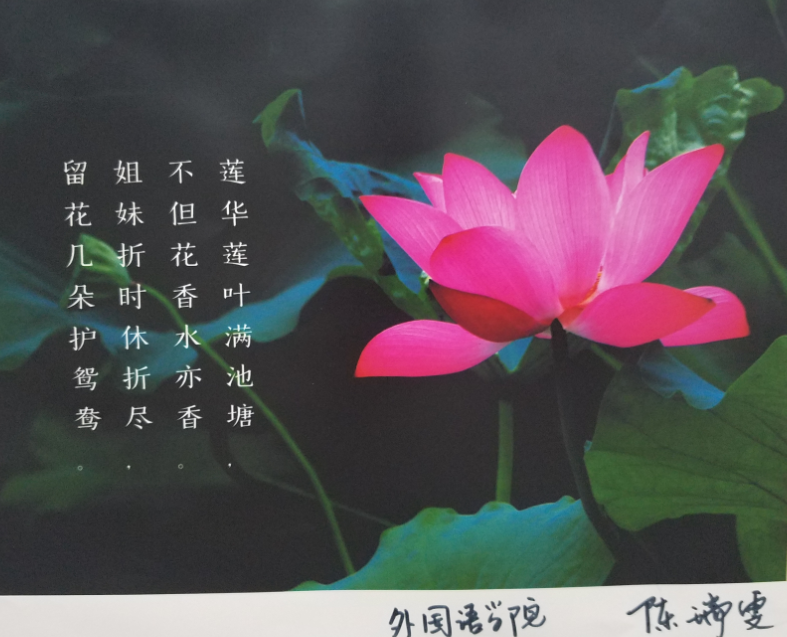 莲华莲叶满池塘，
不但花香水亦香。
姐妹折时休折尽，
留花几朵护鸳鸯。
外国语学院 陈瑞雯